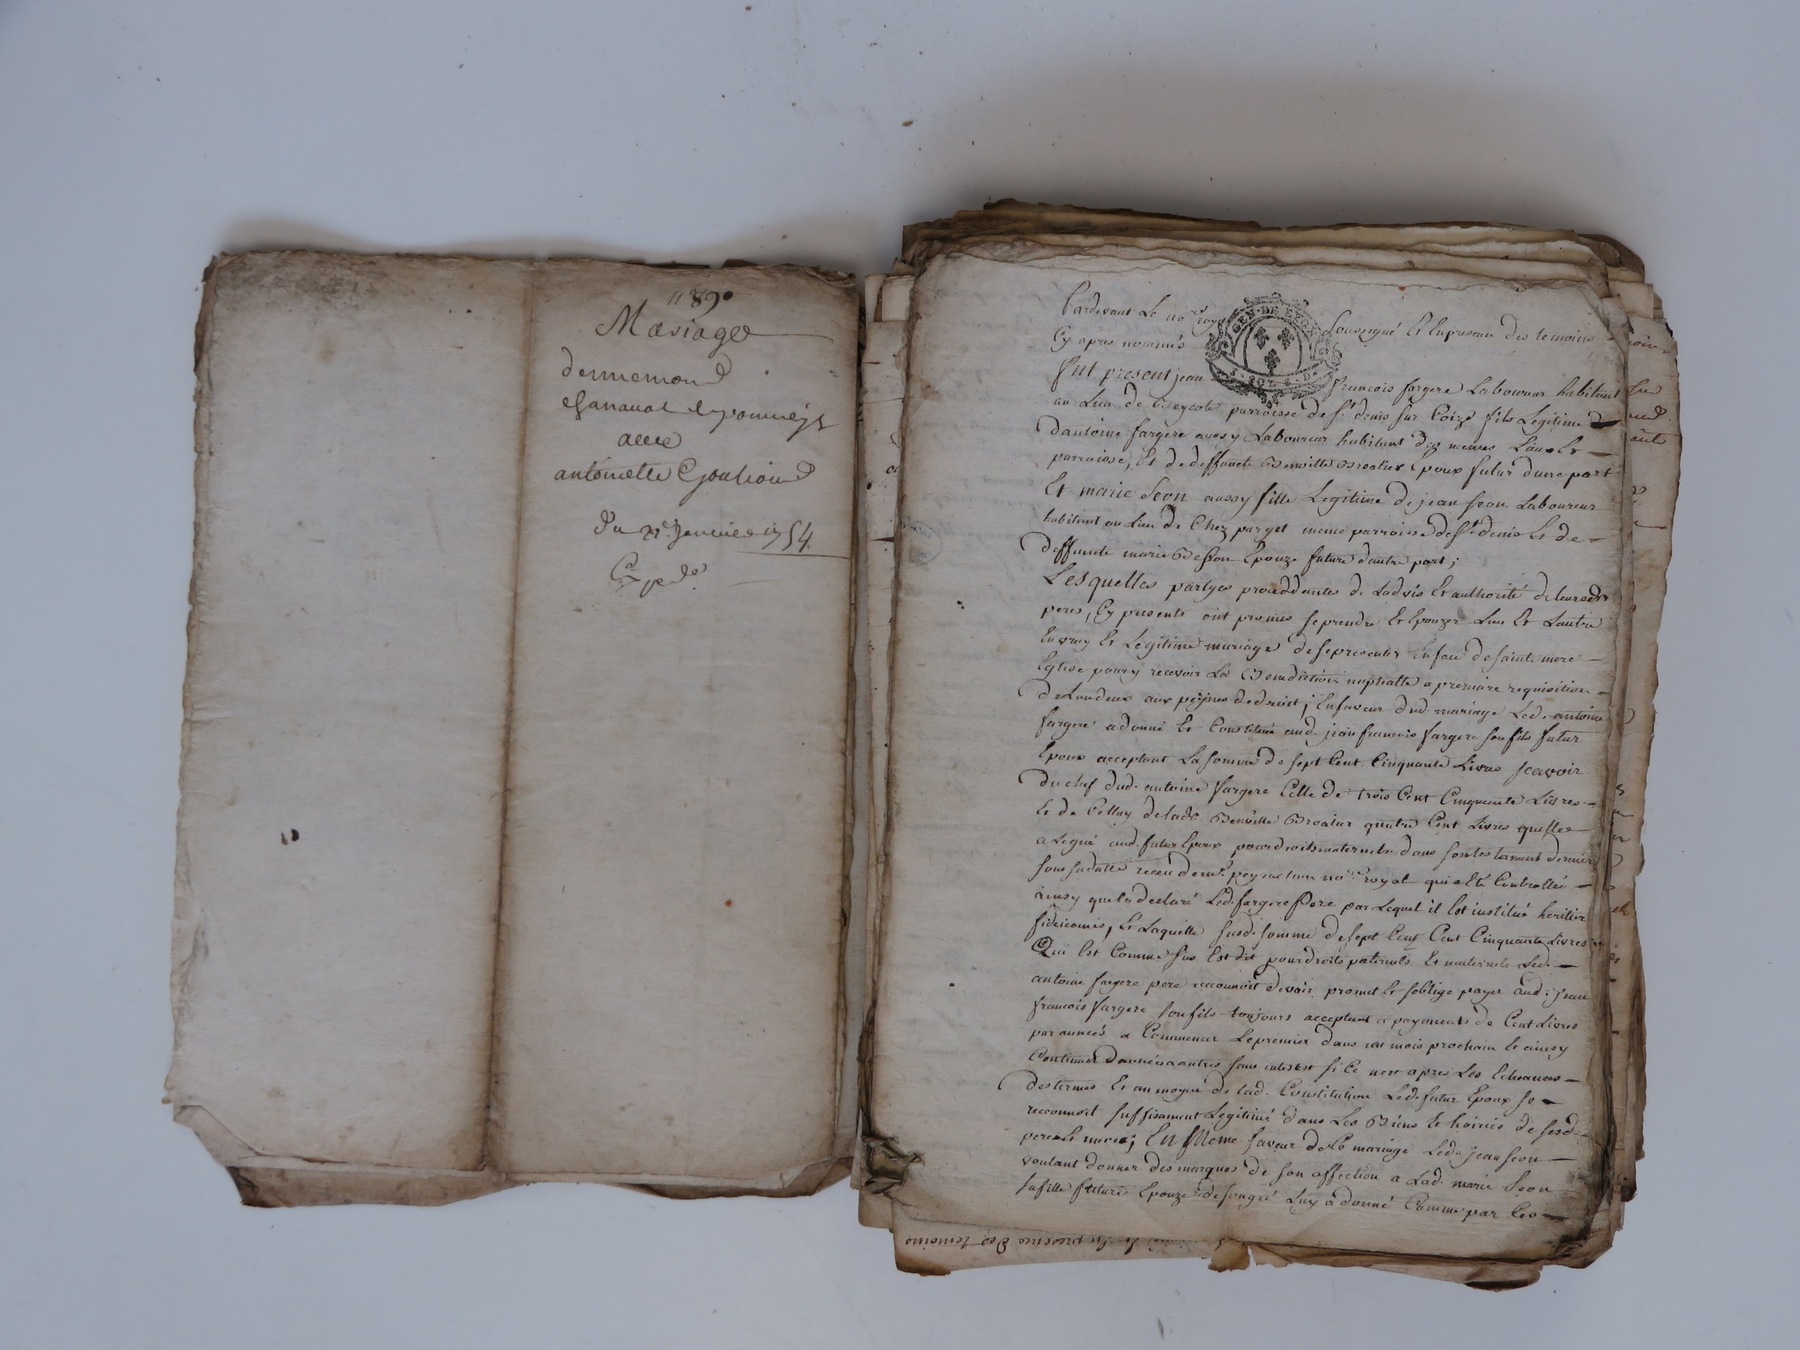 1189
Mariage
dennemond
avec
antoinette
Du Janvier 1754
Expedié
Pardevant Le no.re royal Soussigné Et En presence des temoins
Cy apres nommés
GEN. DE LYON
Fut present jean francois fargere Laboureur habitant
au Lieu de parroisse de St. denis sur Coize fils Legitime
dantoine fargere aussy Laboureur habitant des memes Lieu Et
parroisse, Et de deffunte Benoitte Epoux futur dune part
Et marie Seon aussy fille Legitime de jean Seon Laboureur
habitant au Lieu de Chez même parroisse de St. denis Et de
deffunte marie Epouze future dautre part;
Lesquelles partyes proceddantes de Ladvis Et authorité de leursdts
peres, Cy presents ont promis se prendre Et Epouzer Lun Et Lautre
En vray Et Legitime mariage de se presenter En face de sainte mere
Eglise pour y recevoir La Benediction nuptialle a premiere requisition
de Lun deux aux peynes de droit; En faveur dud. mariage Led. antoine
fargere a donné Et Constitué aud. jean francois fargere son fils futur
Epoux acceptant La somme de sept Cent Cinquante Livres scavoir
du chef dud. antoine fargere Celle de trois Cent Cinquante Livres
Et de Celluy de lade Benoitte quatre Cent Livres quelle
a Legué aud. futur Epoux pour droits maternels dans son testament dernier
sous sa datte receu de me no.re royal qui a Eté Controllé
ainsy que la declaré Led. fargere Pere par Lequel il Est institué heritier
fideicomis, Et Laquelle susd. somme de sept Cent Cinquante Livres
Qui Est Comme sus Est dit pour droits paternels Et maternels Led.
antoine fargere pere reconnoit devoir, promet Et soblige payer aud. jean
francois fargere son fils toujours acceptant a payements de Cent Livres
par années a Commencer Le premier dans un mois prochain Et ainsy
Continuer dannées a autres sans interest si Ce nest apres Les Echeances
des termes Et au moyen de lad. Constitution Led. futur Epoux se
reconnoit suffisament Legitimé dans Les Biens Et hoiries de sesd.
pere Et mere; En Meme faveur dud. mariage Led. jean Seon
voulant donner des marques de son affection a Lad. marie Seon
sa fille future Epouze de son gré Luy a donné Comme par Ces
Et En presence des temoins